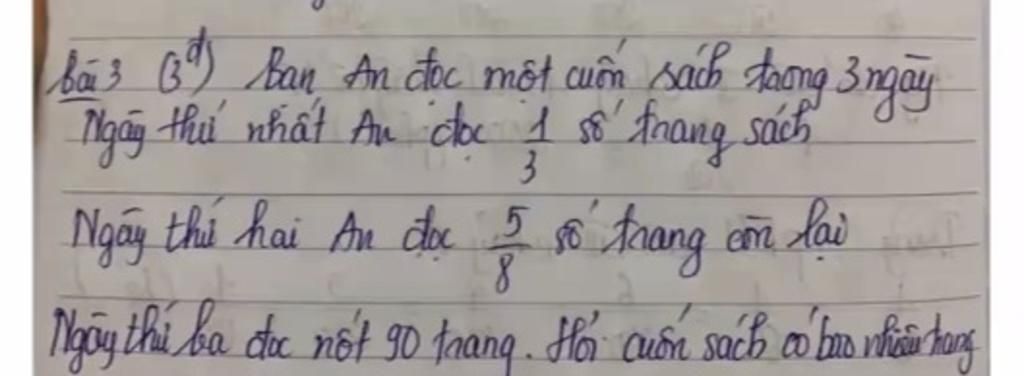 Bài 3 (3đ) Bạn An đọc một cuốn sách trong 3 ngày
Ngày thứ nhất An đọc 1/3 số trang sách
Ngày thứ hai An đọc 5/8 số trang còn lại
Ngày thứ ba đọc nốt 90 trang. Hỏi cuốn sách có bao nhiêu trang